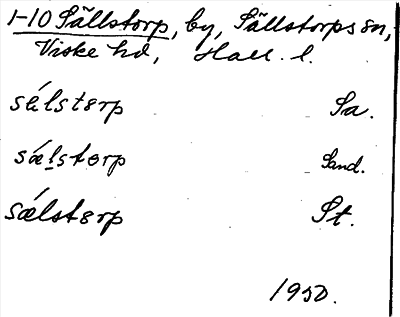 1-10 Sällstorp, by, Sällstorps sn,
Viske hd, Hall. l.
sálstɵrp Sa.
sǽlstɵrp Sand.
sǽlstɵrp St.
1950.